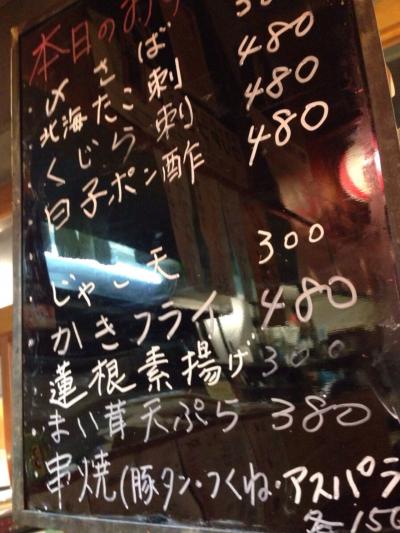 本日のおす
・〆さば 300
・北海たこ刺 480
・くじら刺 480
・白子ポン酢 480
・じゃこ天 300
・かきフライ 480
・蓮根素揚げ 300
・まい茸天ぷら 380
・串焼(豚タン・つくね・アスパラ
各150